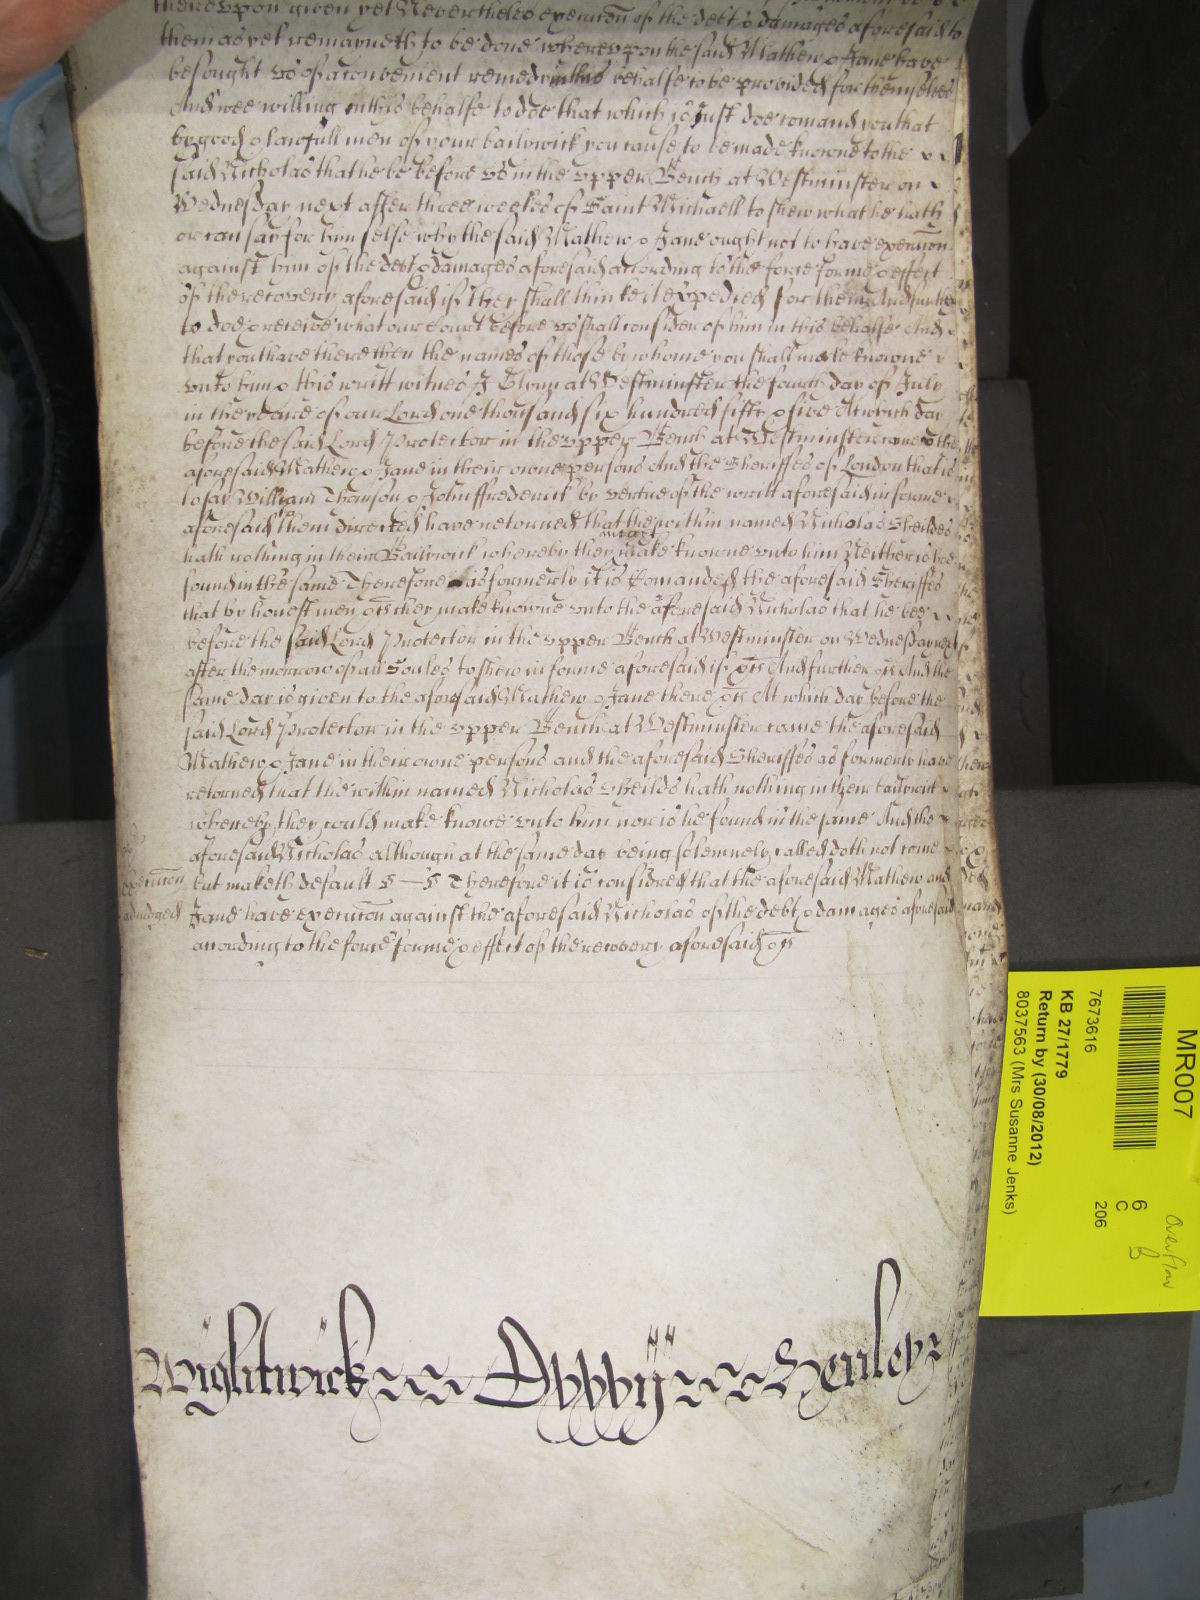 thereupon given yet Neverthelesse execucon of the debt & damages aforesaid to
them as yet remayneth to be done whereupon the said Mathew & Jane have
besought us of a convenient remedy in this behalfe to be provided for themselves
And wee willing in this behalfe to doe that which is Just doe comand you that
by good & lawfull men of your bailywick you cause to be made knowne to the
said Nicholas that he be before us in the upper Bench at Westminster on
Wednesday next after three weekes of Saint Michaell to shew what he hath
or can say for himselfe why the said Mathew & Jane ought not to have execucon
against him of the debt & damages aforesaid according to the force forme & effect
of the recovery aforesaid if they shall thinke it expedient for them And further
to doe & receive what our Court before us shall consider of him in this behalfe And
that you have there then the names of those by whome you shall make knowne
unto him & this writt witnes J Glynn at Westminster the fourth day of July
in the yeare of our Lord one thousand six hundred fifty & five At which day
before the said Lord Protector in the upper Bench at Westminster came the
aforesaid Mathew & Jane in their owne persons And the Sheriffes of London that is
to say William Thomson & John ffrederick by vertue of the writt aforesaid in forme
aforesaid to them directed have returned that the within named Nicholas Sheildes
hath nothing in their Bailywick whereby they might make knowne unto him Neither is hee
found in the same Therefore as formerly it is Comanded the aforesaid Sheriffes
that by honest men &c they make knowne unto the aforesaid Nicholas that he bee
before the said Lord Protector in the upper Bench at Westminster on Wednesday next
after the morrow of all Soules to shew in forme aforesaid if &c And further &c And the
same day is given to the aforesaid Mathew & Jane there &c At which day before the
said Lord Protector in the upper Bench at Westminster came the aforesaid
Mathew & Jane in their owne persons and the aforesaid Sheriffes as formerly have
returned that the within named Nicholas Sheilds hath nothing in their bailywick
whereby they could make knowe unto him nor is he found in the same And the
aforesaid Nicholas although at the same day being solemnely called doth not come
but maketh default Therefore it is considred that the aforesaid Mathew and
Execucon
adiudged
Jane have execucon against the aforesaid Nicholas of the debt & damages aforesaid
according to the force forme & effect of the recovery aforesaid &c
Wightwick Henley
MR007
7673616
KB 27/1779
Return by (30/08/2012)
8037563 (Mrs Susanne Jenks)
6
C
206
Overflow
B